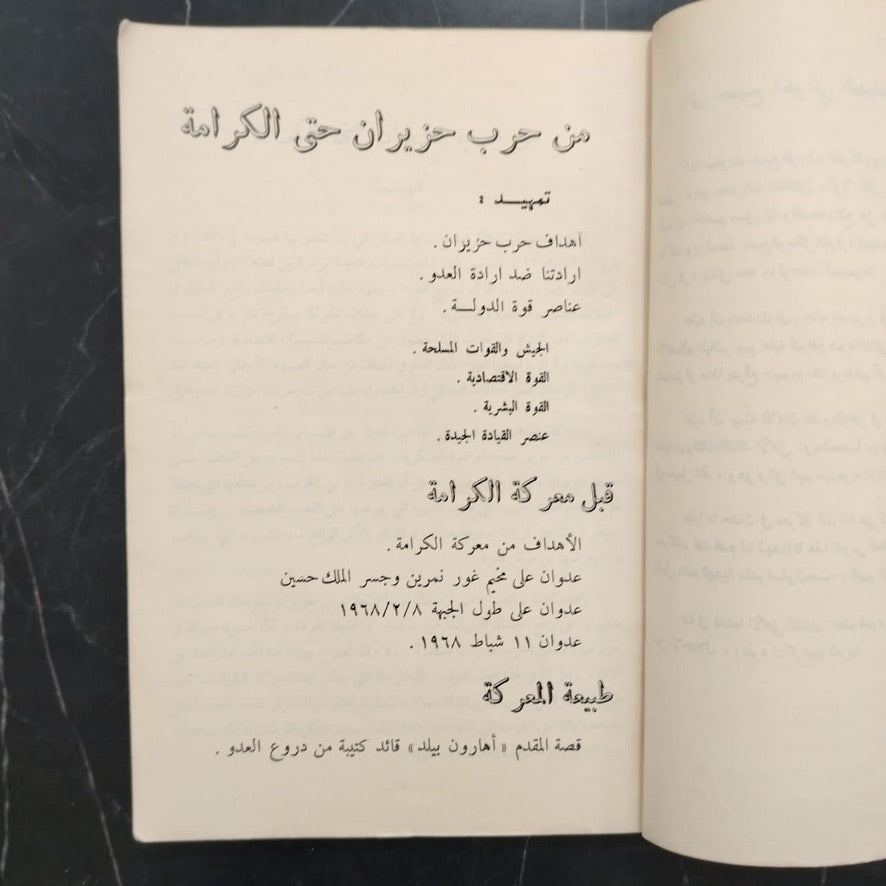 من حرب حزيران حتى الكرامة
تمهيــد :
اهداف حرب حزيران .
ارادتنا ضد ارادة العدو .
عناصر قوة الدولــة .
الجيش والقوات المسلحة .
القوة الاقتصادية .
القوة البشرية .
عنصر القيادة الجيدة .
قبل معركة الكرامة
الأهداف من معركة الكرامة .
عدوان على مخيم غور نمرين وجسر الملك حسين
عدوان على طول الجبهة ١٩٦٨/٢/٨
عدوان ١١ شباط ١٩٦٨ .
طبيعة المعركة
قصة المقدم «أهارون بيلد» قائد كتيبة من دروع العدو .